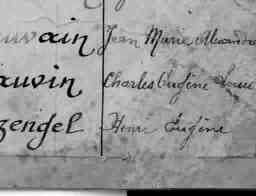 uvain Jean Marie Alexandre
auvin Charles Eugène Louis
zengel Henri Eugène